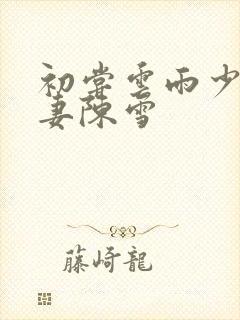 初尝雲雨少
妻陳雪
藤崎龍